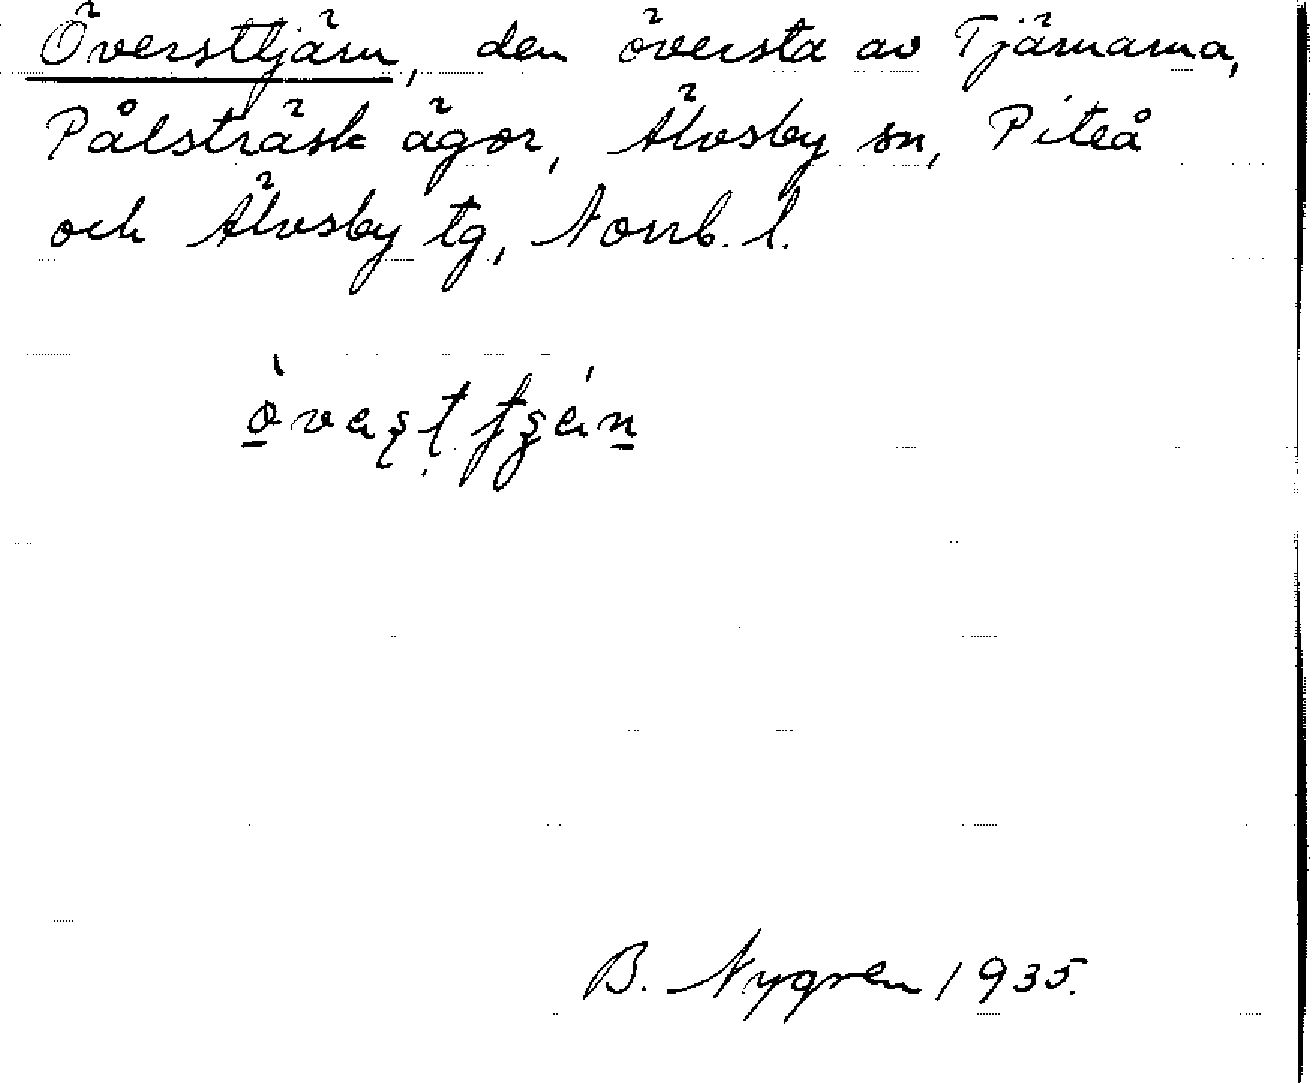 Översttjärn, den översta av Tjärnarna,
Pålsträsk ägor, Älvsby sn, Piteå
och Älvsby tg, Norrb. l.
B. Nygren 1935.